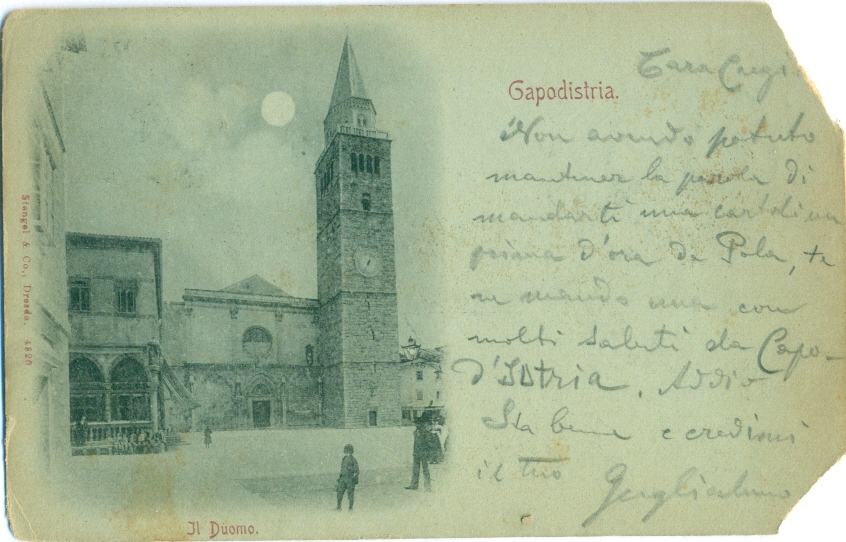 Capodistria.
Cara
Non avendo potuto
mantener la parola di
mandarti una cartolina
prima d'ora da Pola, te
ne mando una con
molti saluti da Capo-
d'Istria. Addio
Sta bene e credimi
il tuo
Stengel & Co., Dresda. 4820
Il Duomo.